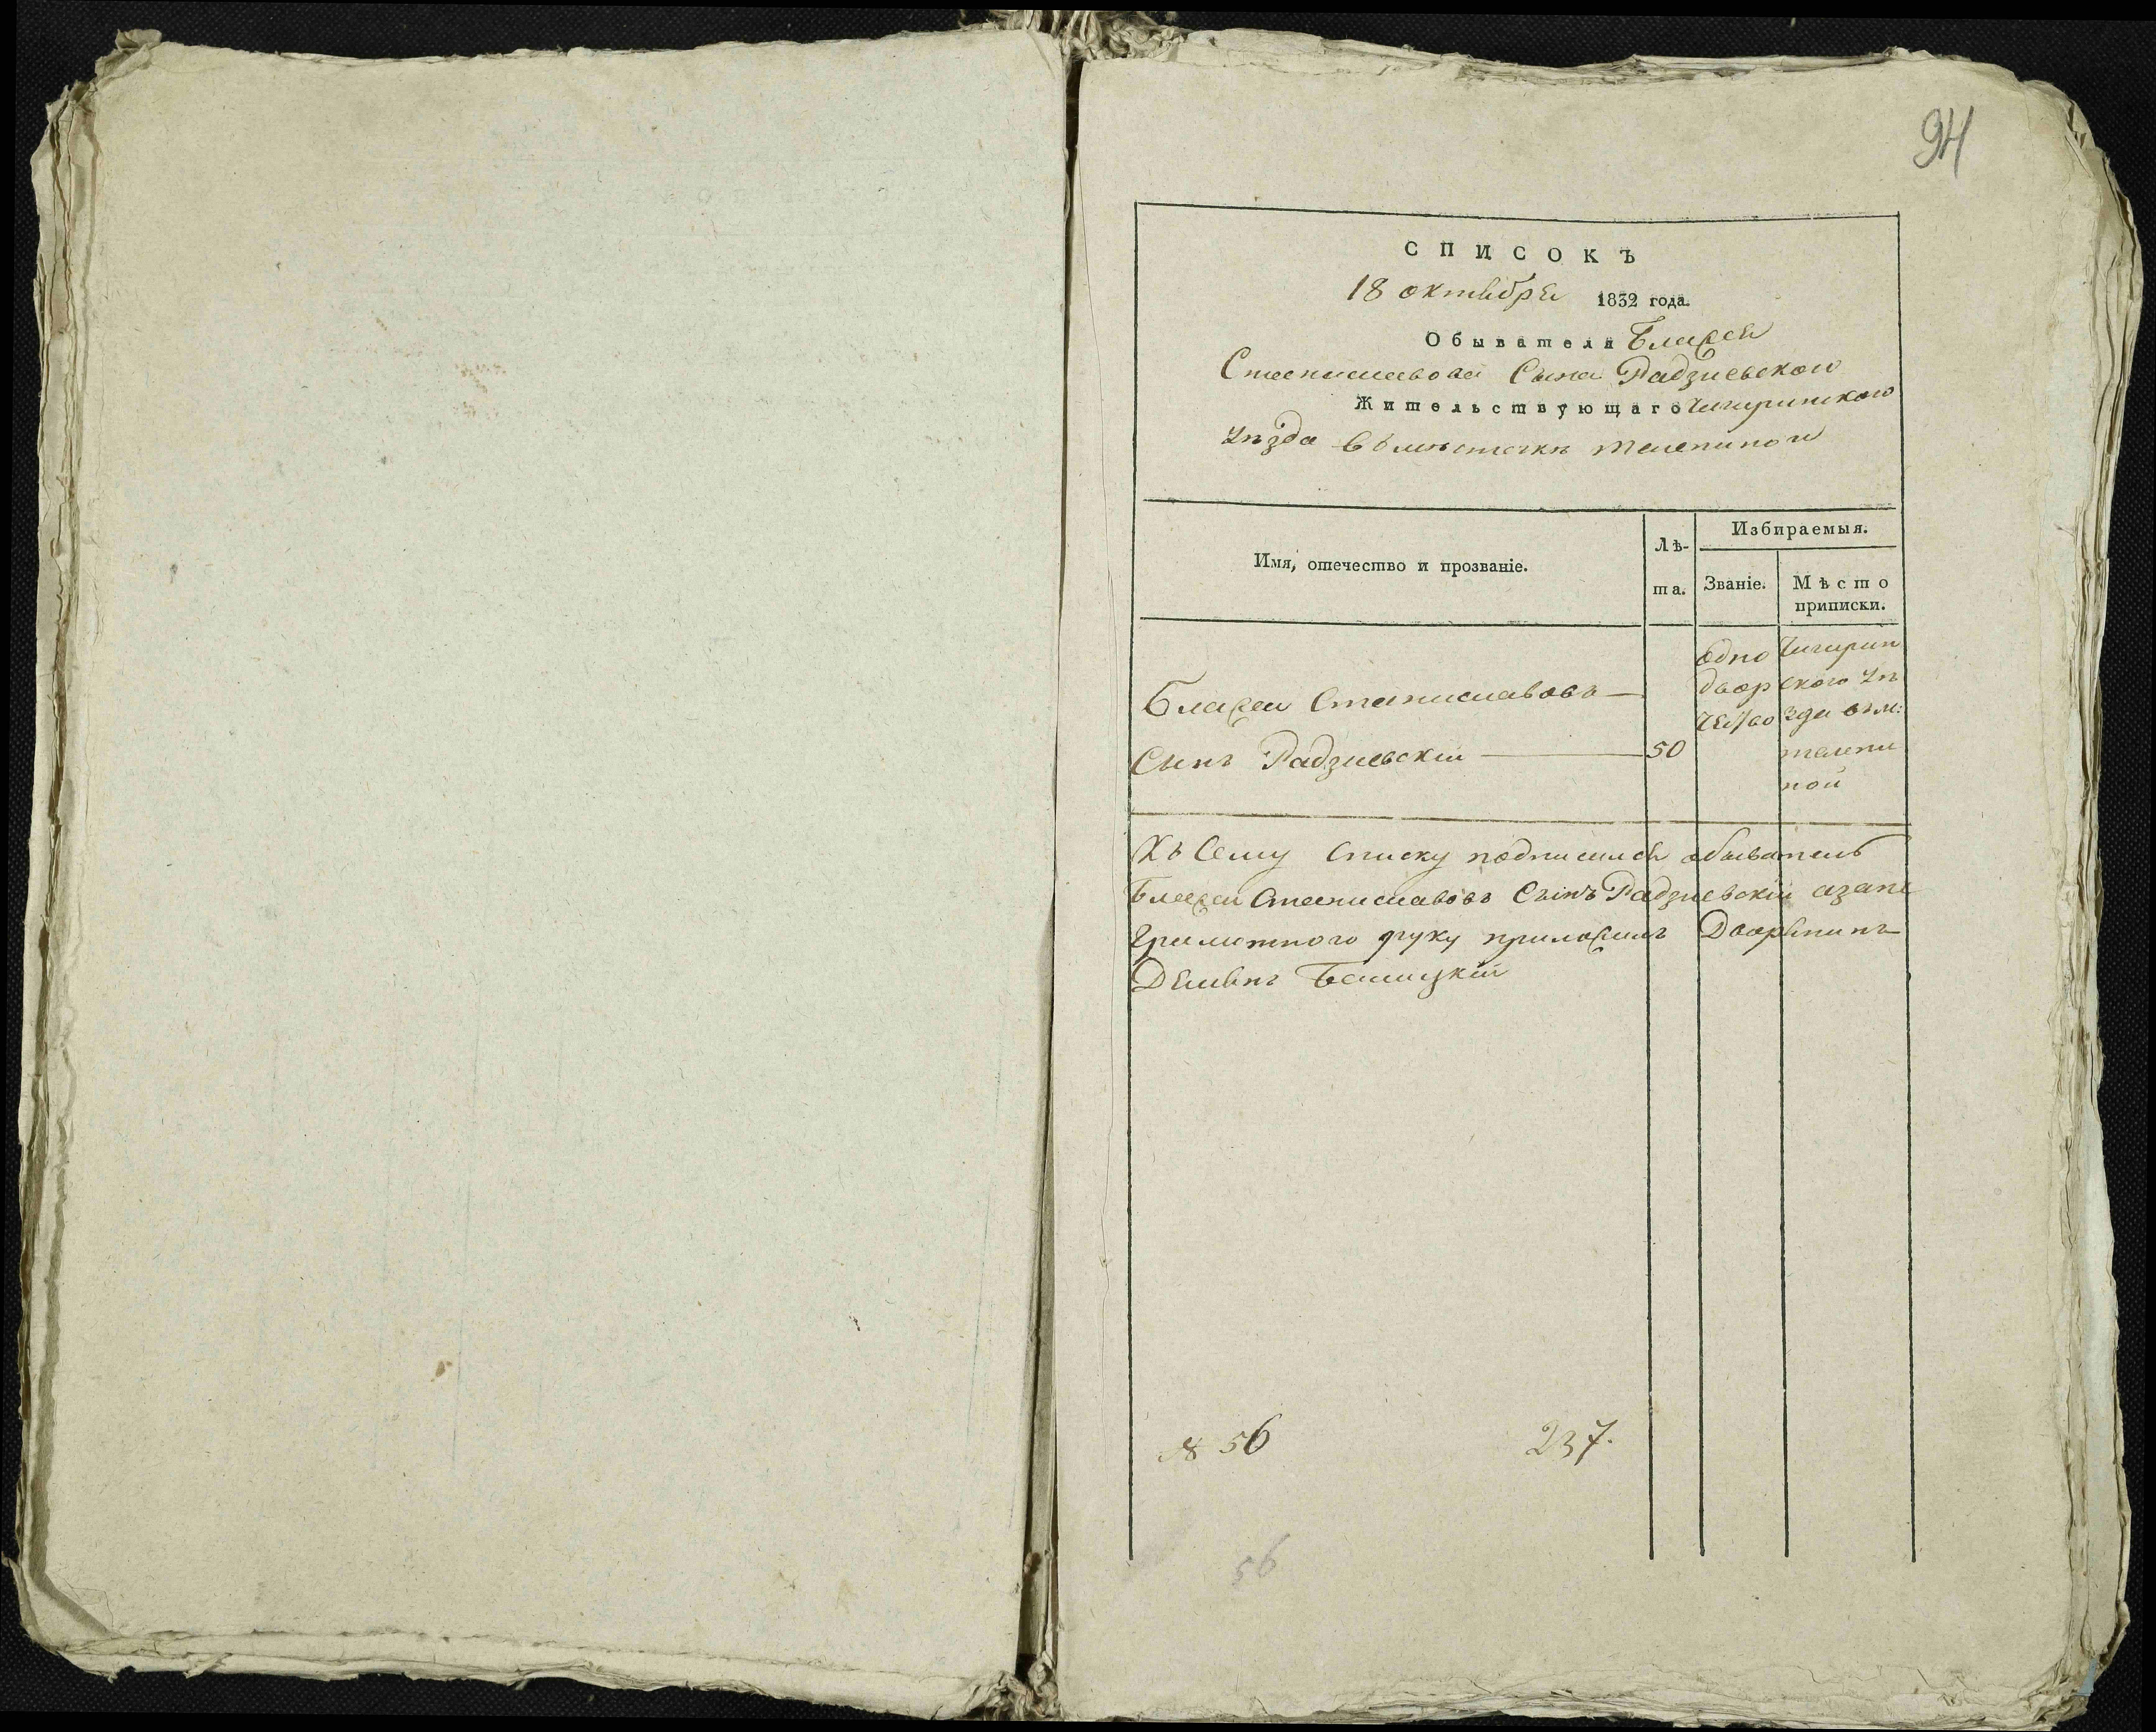 94
СПИСОКЪ
18 октября 1832 года.
Обывателя Блажея
Станиславова Сына Радзиевского
Жительствующаго Чигиринского
уѣзда въ мѣстечкѣ телепиной
Имя, отечество и прозваніе.
Лѣ-
та.
Избираемыя.
Званіе.
Мѣсто
приписки.
Блажей Станиславовъ
Сынъ Радзиевскій 50
Одно
двор
Чигирин
ского уѣ
зда въ м:
телепи
ной
Къ Сему Списку подписался обыватель
Блажей Станиславовъ Сынъ Радзиевскій азане
грамотного руку приложилъ Дворянинъ
№ 56 237.
56